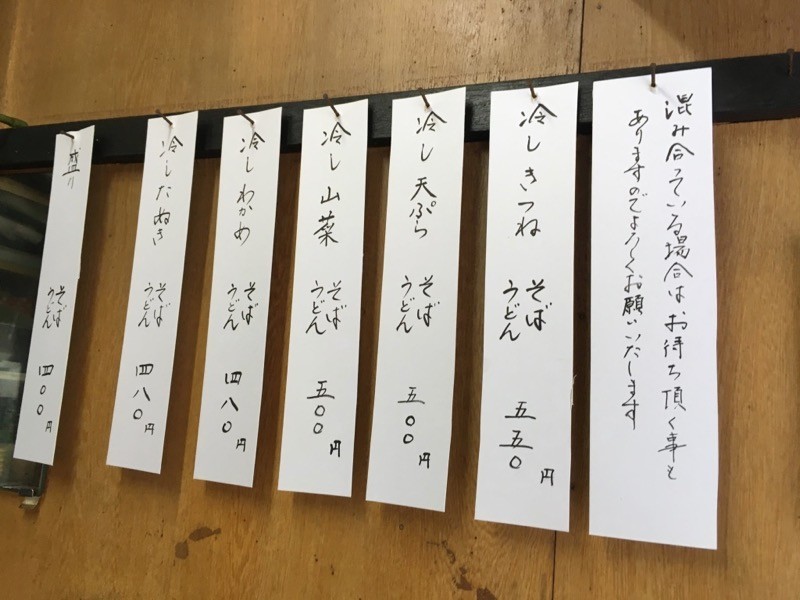 混み合っている場合はお待ち頂く事も
ありますのでよろしくお願いいたします
冷しきつね
そば
うどん
五五〇円
冷し天ぷら
そば
うどん
五〇〇円
冷し山菜
そば
うどん
五〇〇円
冷しわかめ
そば
うどん
四八〇円
冷したぬき
そば
うどん
四八〇円
盛り
そば
うどん
四〇〇円